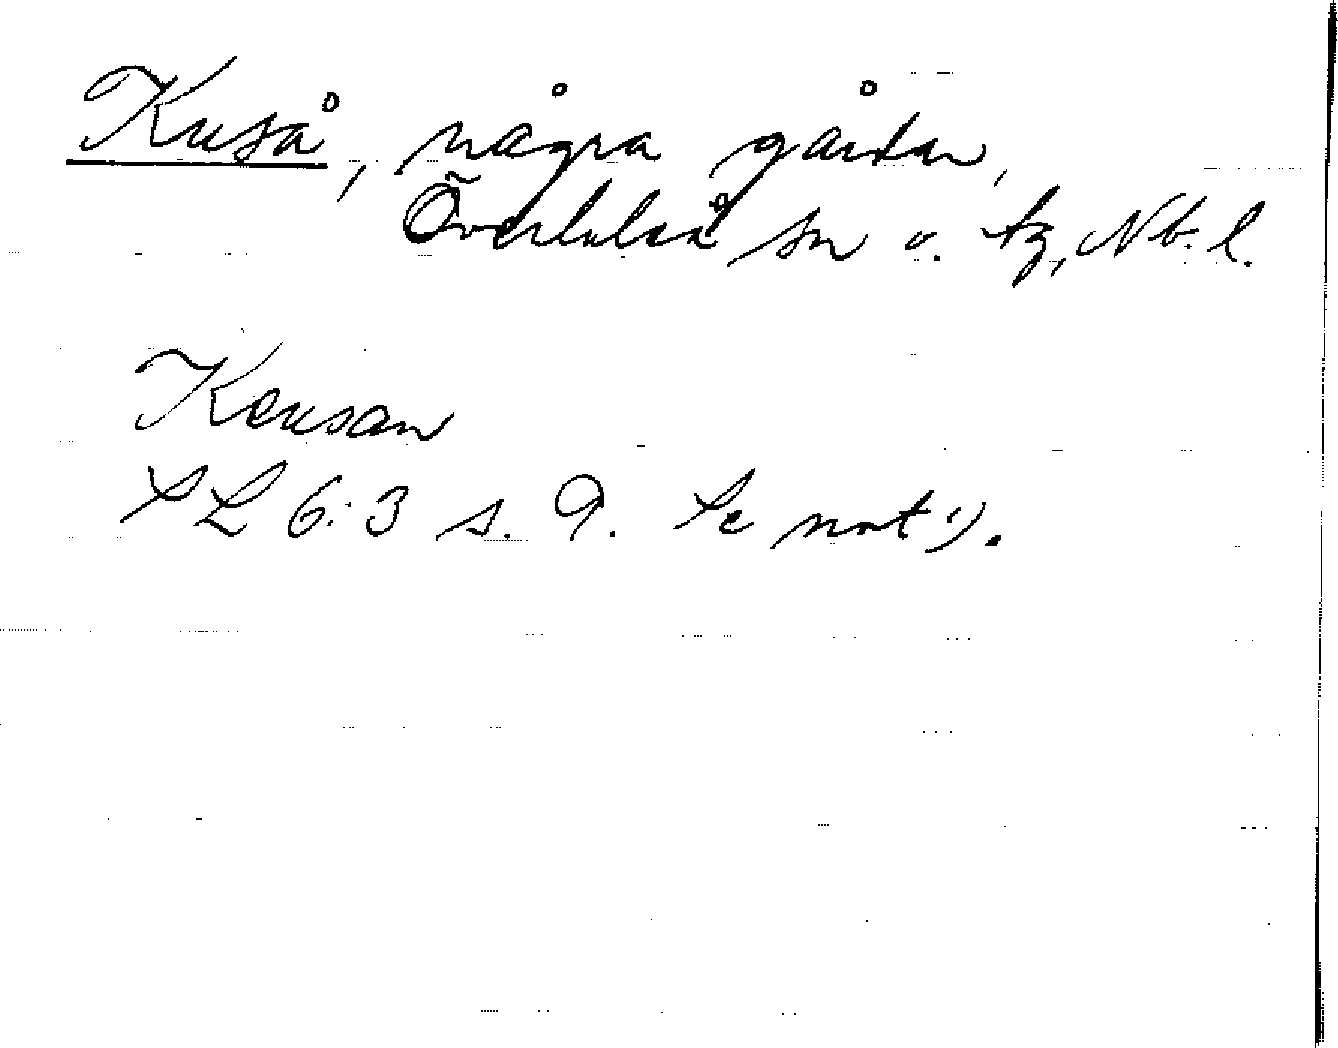 Kuså, några gårdar,
Överluleå sn o. tg, Nb. l.
Keusan
SL 6:3 s. 9. Se not 1).